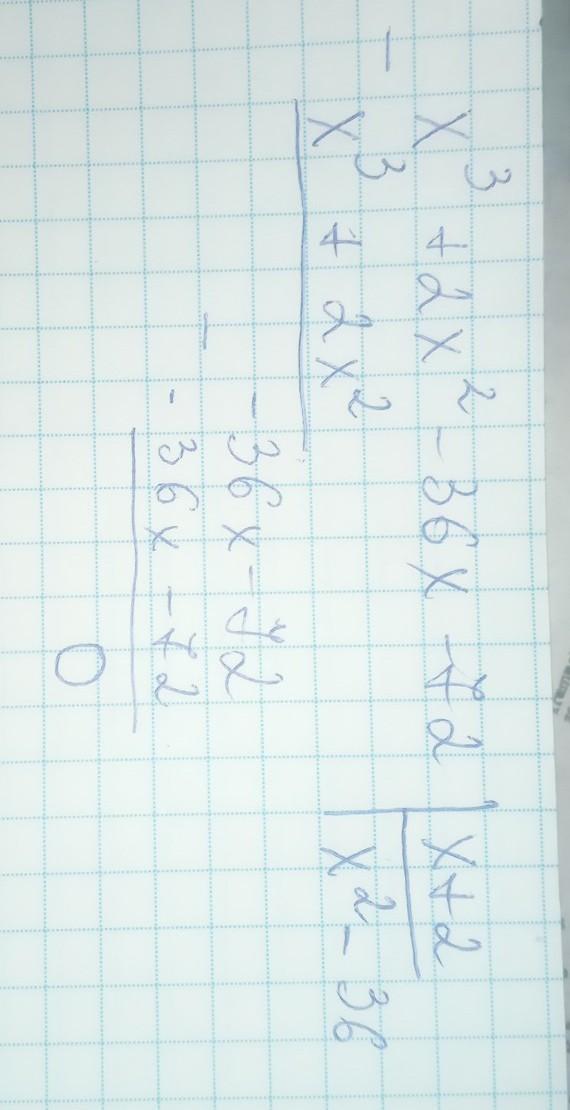 x³ + 2x² - 36x - 72 | x + 2
- x³ + 2x² | x² - 36
- 36x - 72
- - 36x - 72
0